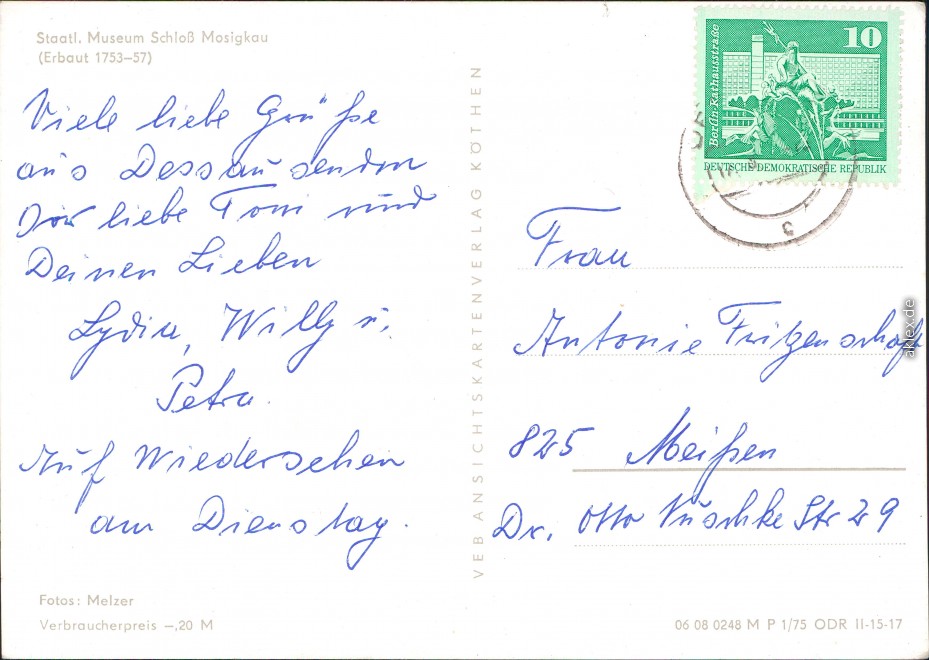 Staatl. Museum Schloß Mosigkau
(Erbaut 1753–57)
Viele liebe Grüße
aus Dessau senden
Dir liebe Toni und
Deinen Lieben
Lydia, Willy u.
Petra.
Auf Wiedersehen
am Dienstag.
Fotos: Melzer
Verbraucherpreis –,20 M
VEB ANSICHTSKARTENVERLAG KÖTHEN
10
Berlin, Rathausstraße
DEUTSCHE DEMOKRATISCHE REPUBLIK
Frau
Antonie Fritzenschaft
825 Meißen
Dr. Otto Nuschke Str 29
06 08 0248 M P 1/75 ODR II-15-17
akpool.de